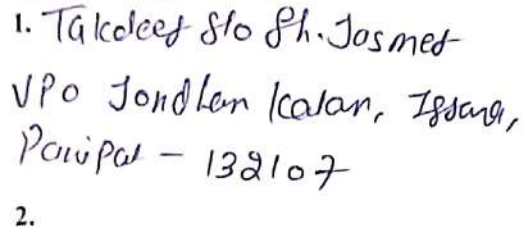 1. Takdeer S/o Sh. Jasmer
VPO Jondhan Kalan, Issana,
Panipat - 132107
2.